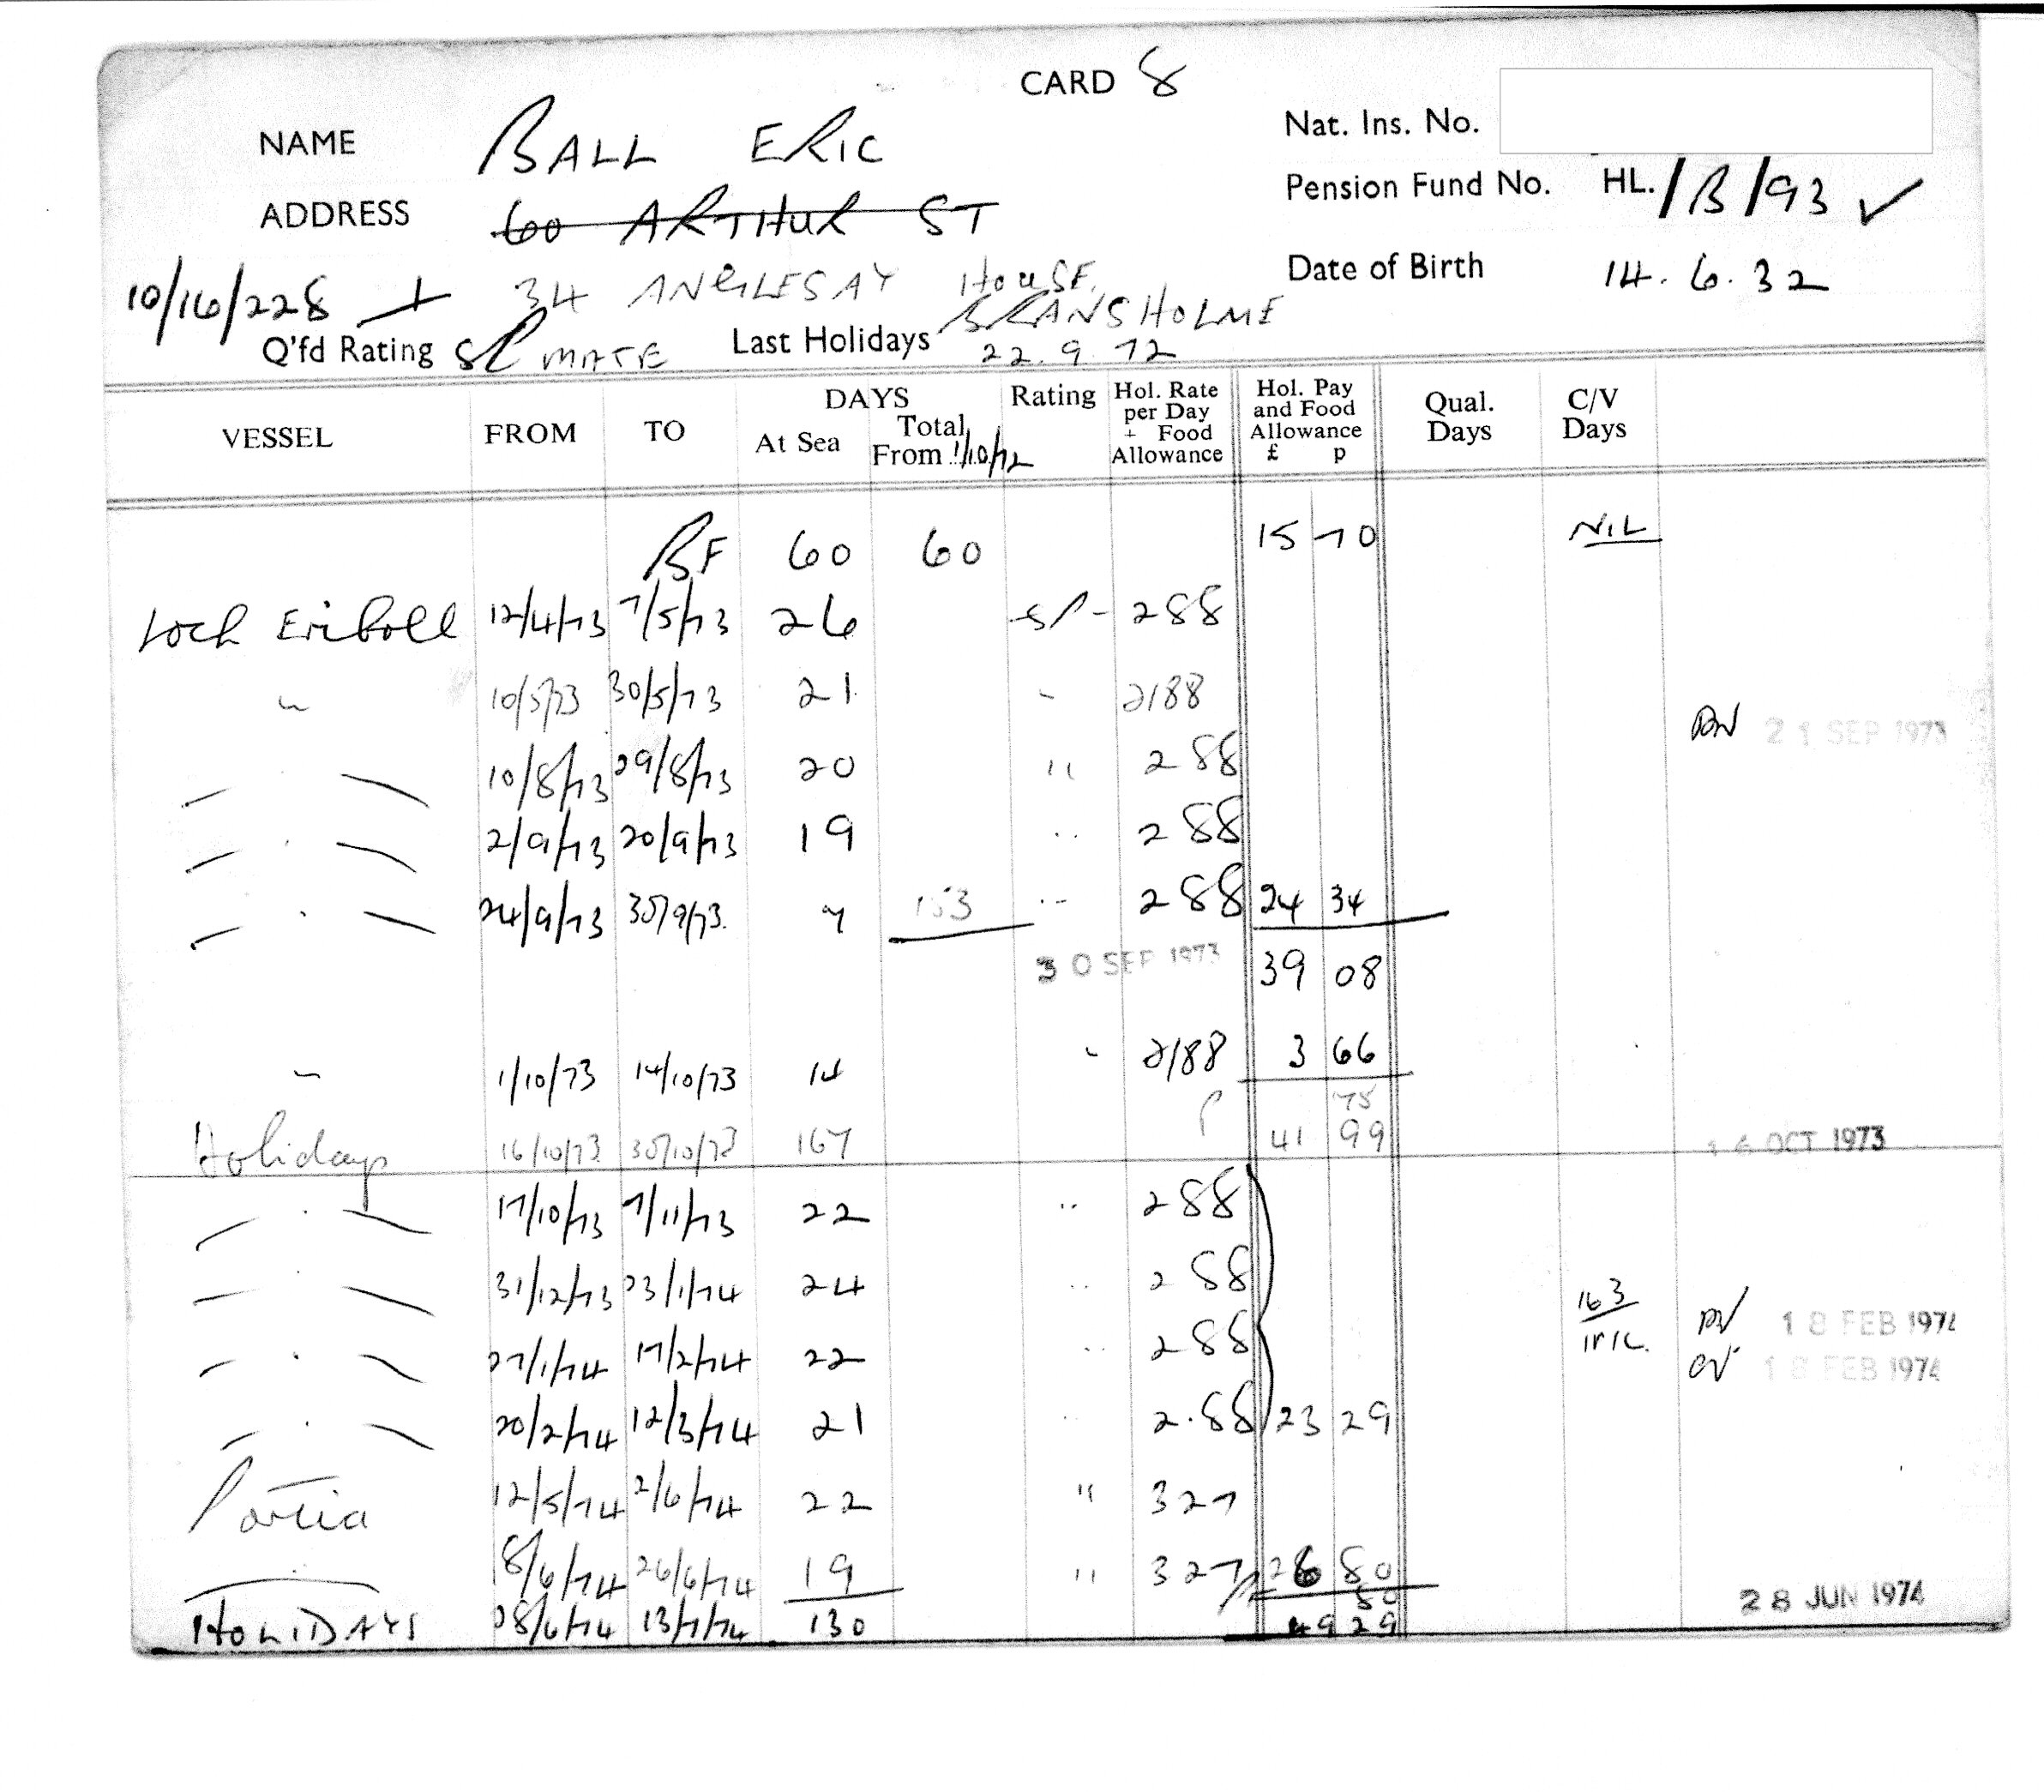 CARD 8
NAME BALL ERIC Nat. Ins. No.
ADDRESS 60 ARTHUR ST Pension Fund No. HL./B/93 ✓
10/16/228 34 ANGLESAY HOUSE, Date of Birth 14.6.32
BRANSHOLME
Q'fd Rating SP MATE Last Holidays 22.9.72
VESSEL FROM TO DAYS At Sea Total From 1/10/72 Rating Hol. Rate per Day + Food Allowance Hol. Pay and Food Allowance £ p Qual. Days C/V Days
BF 60 60 15 70 NIL
Loch Eriboll 12/4/73 7/5/73 26 SP - 288
" 10/5/73 30/5/73 21 " 2/88
21 SEP 1973
10/8/73 29/8/73 20 " 288
2/9/73 20/9/73 19 " 288
24/9/73 30/9/73 7 153 " 288 24 34
30 SEP 1973 39 08
" 1/10/73 14/10/73 14 " 2/88 3 66
75
Holidays 16/10/73 30/10/73 167 41 99 16 OCT 1973
17/10/73 7/11/73 22 " 288
31/12/73 23/1/74 24 " 288
163 18 FEB 1974
27/1/74 17/2/74 22 " 288
18 FEB 1974
20/2/74 12/3/74 21 " 2.88 23 29
Portia 12/5/74 2/6/74 22 " 327
8/6/74 26/6/74 19 " 327 26 80
50
HOLIDAYS 28/6/74 13/7/74 130 49 29 28 JUN 1974